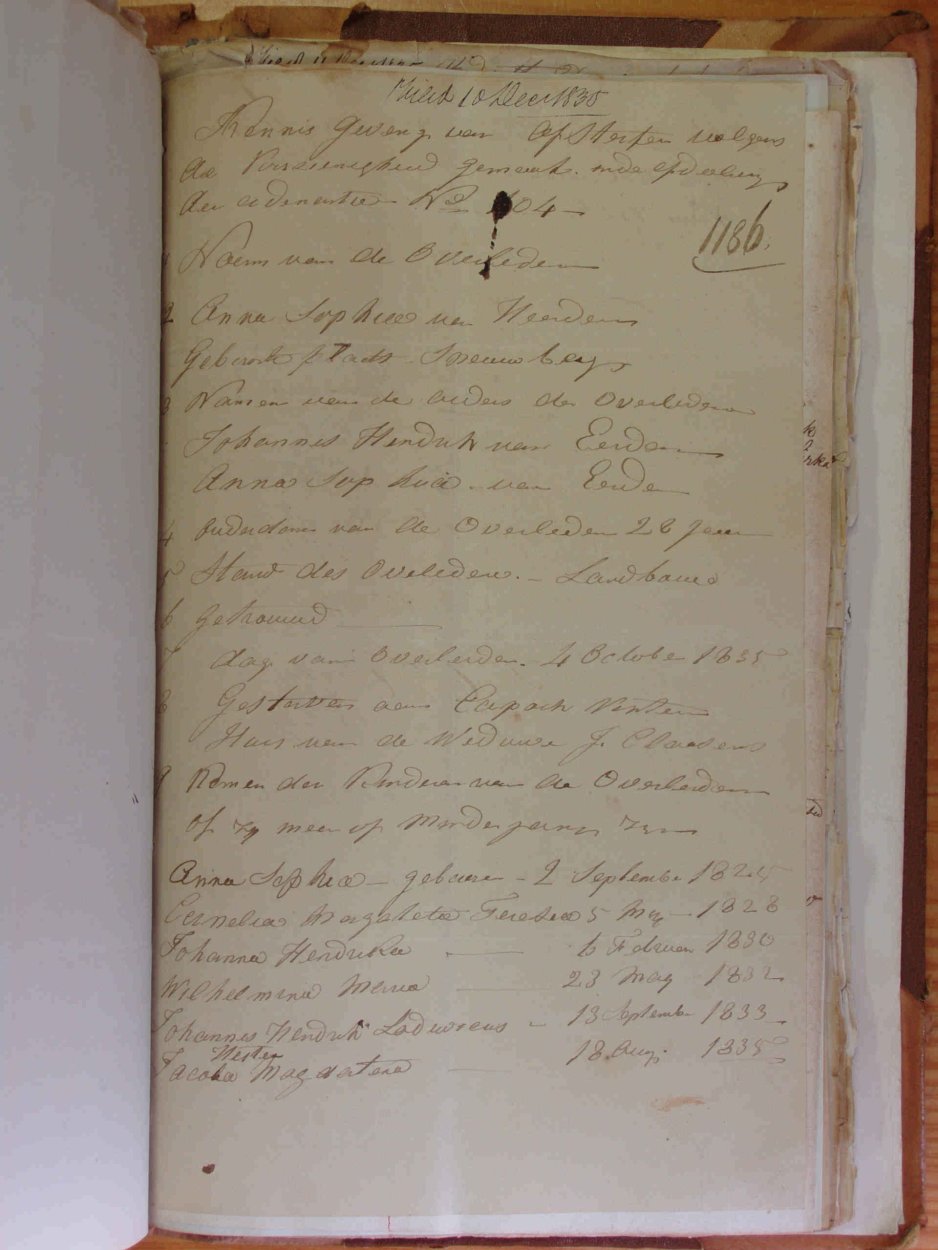 Filed 10 Dec 1835
Kennis Geving van Afsterfen volgens
de gemaakt
der ordonantie No 104
1186
1 Naem van de Overledene
2 Anna Sophia van Heerden
Geboorte Plaats Sneuwberg
3 Namen van de ouders der Overledene
Johannes Hendrik van Eerden
Anna Sophia van Eerden
4 ouderdom van de Overleden 28 Jaar
5 Stand des Overledene. - Landbouw
6 Getrouwd
7 dag van Overleiden. 4 October 1835
8 Gestorven aan
Huis van de Weduwe J. Claasens
9 Namen der Kinderen van de Overledene
of zy meer of Minderjarig zyn
Anna Sophia - geboren - 2 September 1825
Cornelia Magaleta Teresia 5 My - 1828
Johanna Hendrika 6 Februari 1830
Wilhelmina Maria 23 May 1832
Johannes Hendrik Loduvicus - 13 September 1833
Hester
Jacoba Magdalena 18 Aug. 1835